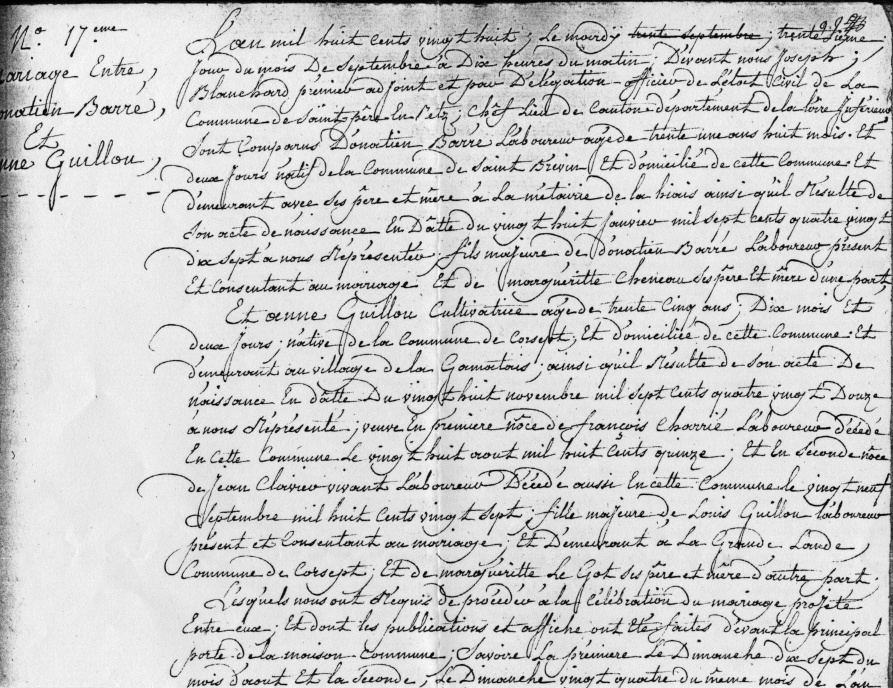 No. 17eme
ariage Entre,
onation Barré,
Et
nne Guillou,
L'an mil huit cents vingt huit; Le mardy trente septembre; trentieme
Jour du mois De Septembre à Dix heures du matin; Devant nous Joseph;
Blanchard premier adjoint et par Délégation officier de L'état Civil de La
Commune de Saint père En Retz; Chef Lieu de Canton département de la loire Inférieure
Sont Comparus Donatien Barré Laboureur agé de trente une ans huit mois Et
deux Jours natif de la Commune de Saint Brevin Et domicilié de cette Commune Et
demeurant avec ses père et mère à La métairie de la hiais ainsi qu'il Résulte de
Son acte de naissance En Dâtte du vingt huit Janvier mil sept cents quatre vingt
dix sept à nous Réprésentée; fils majeure de Donatien Barré Laboureur présent
Et Consentant au mariage Et de margueritte Cheneau Ses père Et mère d'une part
Et anne Guillou Cultivatrice agé de trente Cinq ans; Dix mois Et
deux Jours; native de la Commune de Corsept; Et domiciliée de cette Commune Et
demeurant au village de la Gamotais; ainsi qu'il Résulte de son acte De
naissance En dâtte Du vingt huit novembre mil sept Cents quatre vingt Douze
à nous Réprésenté; veuve En premiere nôce de françois Charrié Laboureur décédé
En cette Commune Le vingt huit aout mil huit Cents quinze; Et En seconde nôce
de Jean Clavier vivant Laboureur Décédé aussi En cette Commune le vingt neuf
Septembre mil huit Cents vingt sept; fille majeure de Louis Guillou laboureur
présent et Consentant au mariage; Et Demeurant à La Grande Lande,
Commune de Corsept; Et de margueritte Le Got ses père et mère d'autre part.
Lesquels nous ont Requis de procéder à la Célébration du mariage projeté
Entre eux; Et dont les publications et affiche ont Eté faites devant la principal
porte de la maison Commune; Savoire La premiere Le Dimanche dix sept du
mois d'aout Et la seconde, Le Dimanche vingt quatre du même mois de L'an